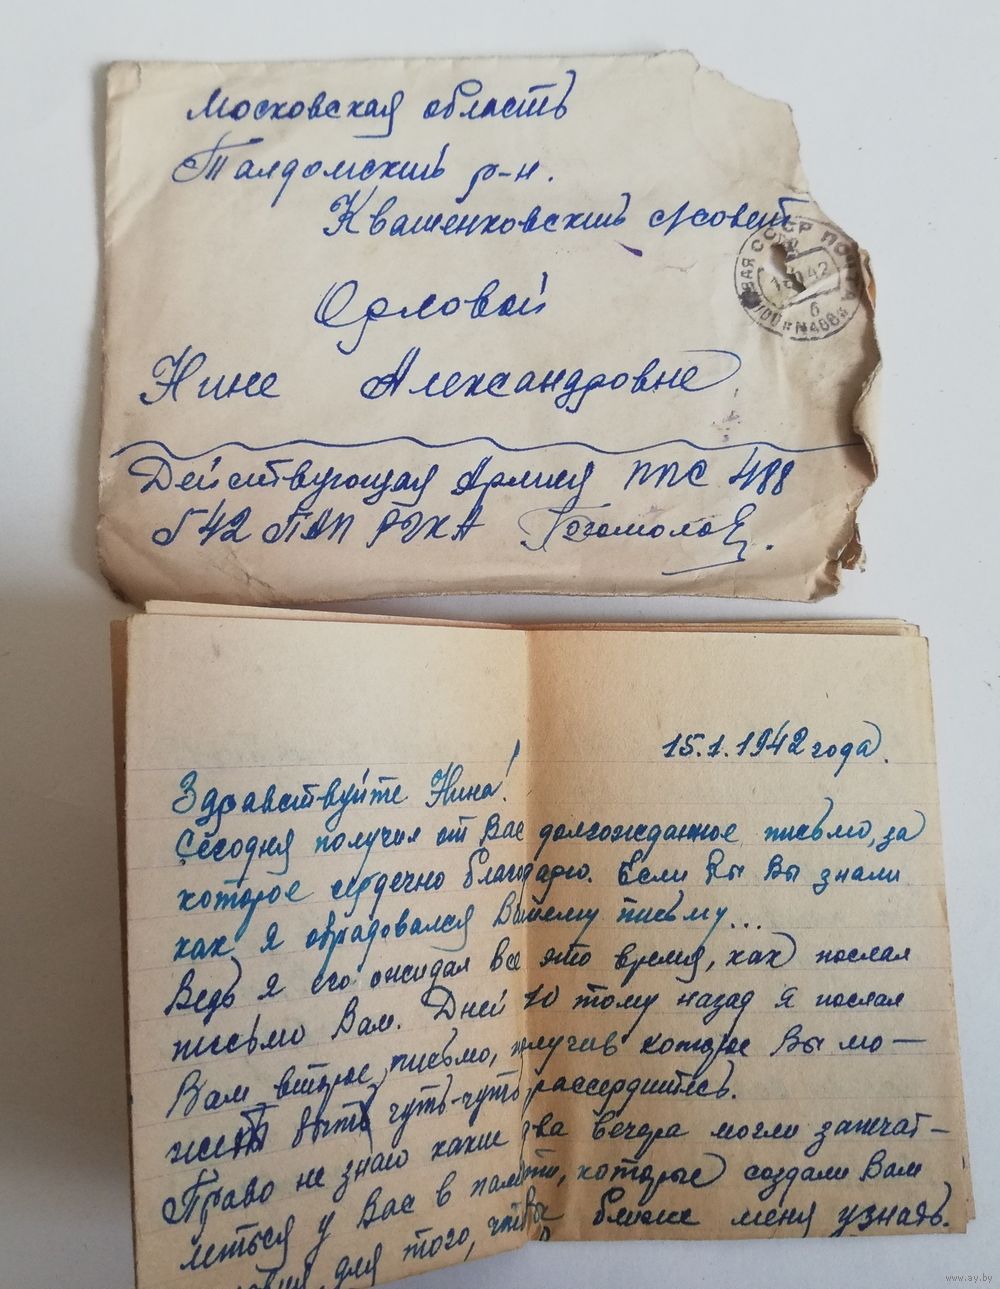 Московская область
Талдомский р-н.
Квашенковский с/совет
Орловой
Нине Александровне
СССР ПОЧТА
42
б
N 488
Действующая Армия ППС 488
642 ПАП РГК А
15.1.1942 года.
Здравствуйте Нина!
Сегодня получил от Вас долгожданное письмо, за
которое сердечно благодарю. Если бы Вы знали
как я обрадовался Вашему письму...
Ведь я его ожидал все это время, как послал
письмо Вам. Дней 10 тому назад я послал
Вам второе письмо, получив которое Вы мо-
жет быть чуть-чуть рассердитесь.
Право не знаю какие два вечера могли запечат-
леться у Вас в памяти, которые создали Вам
для того, чтобы ближе меня узнать.
www.ay.by